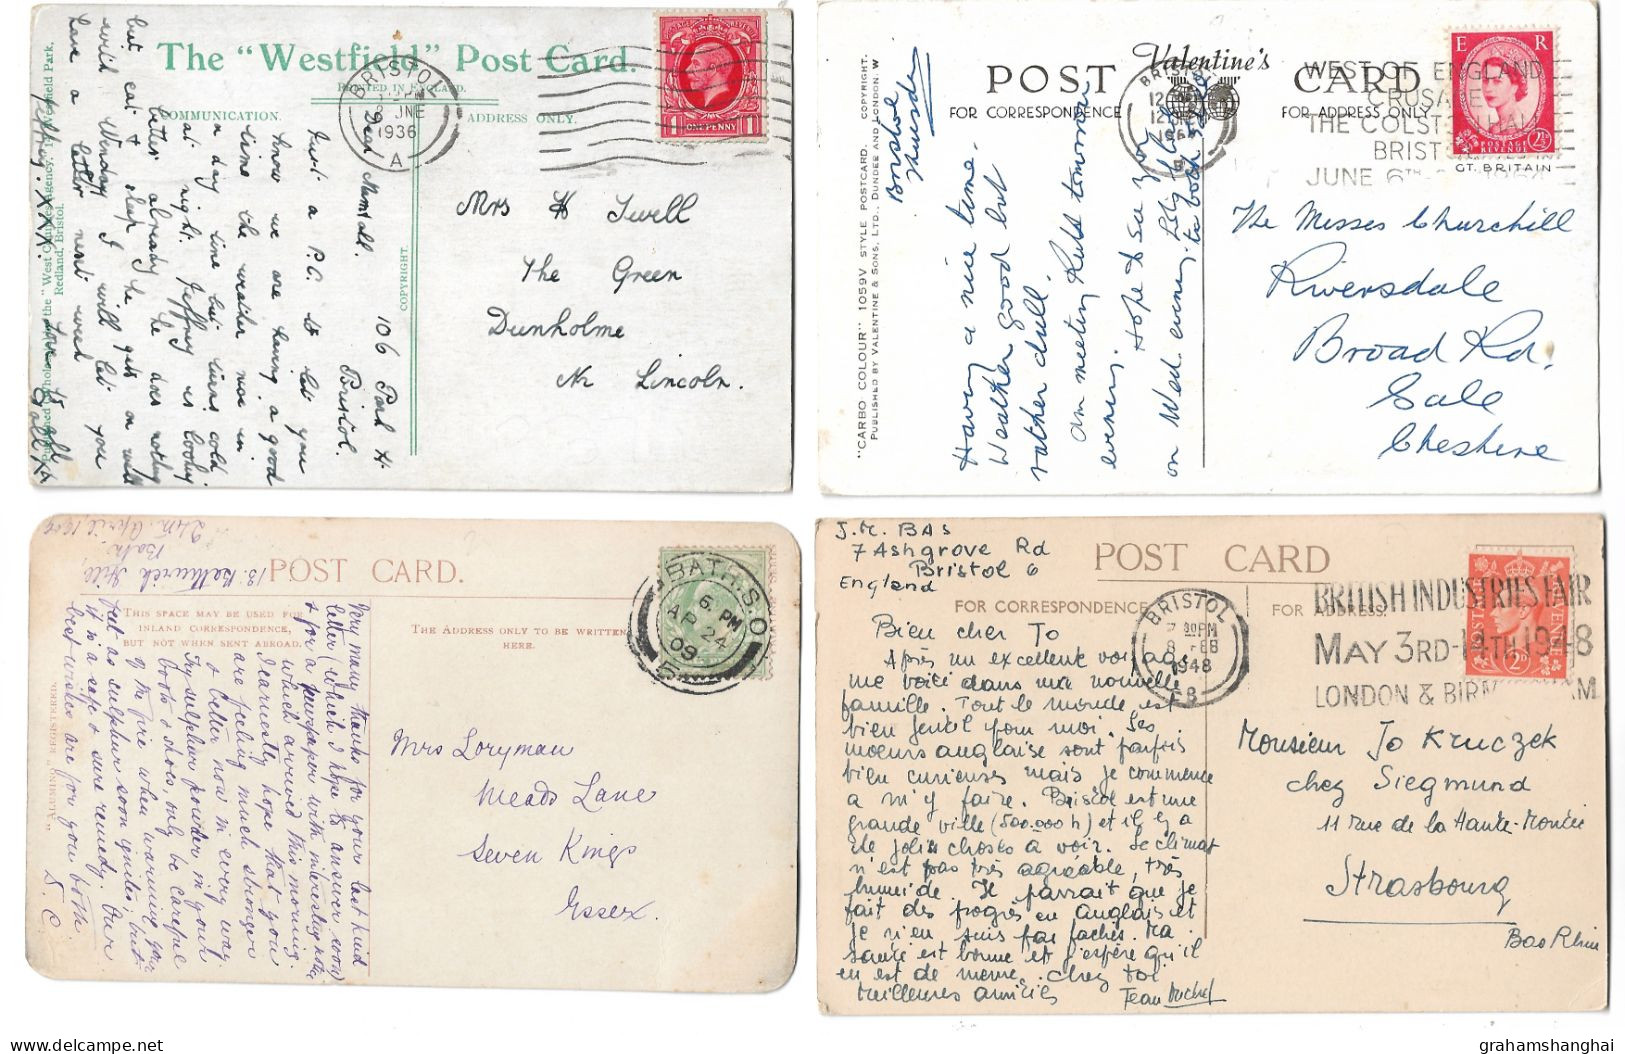 The "Westfield" Post Card.
PRINTED IN ENGLAND.
COMMUNICATION.
ADDRESS ONLY.
COPYRIGHT.
BRISTOL
JNE
1936
A
POSTAGE REVENUE
1 ONE PENNY 1
106 Park
Bristol.
Dear Mum & all.
Just a P.C. to let you
know we are having a good
time the weather nice in
day time but turns cold
at night. Jeffrey is looking
better already he does nothing
but eat & sleep he gets on well
with Wendy I will let you
have a letter next week
Mrs H Jwell
The Green
Dunholme
Nr Lincoln.
Valentine's
POST CARD
FOR CORRESPONDENCE
FOR ADDRESS ONLY
"CARBO COLOUR" 1059V STYLE POSTCARD. COPYRIGHT.
PUBLISHED BY VALENTINE & SONS, LTD., DUNDEE AND LONDON. W
E R
POSTAGE REVENUE
2½
GT. BRITAIN
WEST OF ENGLAND
CRUSADE
THE COLST HALL
BRIST
JUNE 6TH 1964
Bristol
Thursday
Having a nice time.
Weather good but
rather dull.
am meeting Ruth tomorrow
evening. Hope to see you
on Wed. evening.
The Misses Churchill
Riversdale
Broad Rd.
Sale
Cheshire
POST CARD.
THIS SPACE MAY BE USED FOR
INLAND CORRESPONDENCE,
BUT NOT WHEN SENT ABROAD.
THE ADDRESS ONLY TO BE WRITTEN
HERE.
BATH.S.O
6. PM
AP 24
09
5
Bath
24th April, 1909
Very many thanks for your last kind
letter (which I hope to answer soon)
& for a newspaper with interesting notes
which arrived this morning.
I earnestly hope that you
are feeling much stronger
& better now in every way.
Try sulphur powder in your
boots & shoes, only be careful
of the fire when warming your
feet as sulphur soon ignites; but
it is a safe & sure remedy. Our
best wishes are for you both
S. C.
Mrs Loryman
Meads Lane
Seven Kings
Essex.
J.M. BAS
7 Ashgrove Rd
Bristol 6
England
POST CARD
FOR CORRESPONDENCE
FOR ADDRESS
BRISTOL
7 30PM
8 FEB
1948
BRITISH INDUSTRIES FAIR
MAY 3RD-14TH 1948
LONDON & BIRM AM
2D
Bien cher Jo
Après un excellent voyage
me voici dans ma nouvelle
famille. Tout le monde est
bien gentil pour moi. Les
moeurs anglaise sont parfois
bien curieuses mais je commence
a m'y faire. Bristol est une
grande ville (500.000h) et il y a
de jolies choses a voir. Le climat
n'est pas très agréable, très
humide. Il parrait que je
fait des progrès en anglais et
je n'en suis pas faché. Ma
santé est bonne et j'espère qu'il
en est de même chez toi
meilleures amitiés
Jean
Monsieur Jo Kruczek
chez Siegmund
11 rue de la Haute-Montée
Strasbourg
Bas Rhin
grahamshanghai